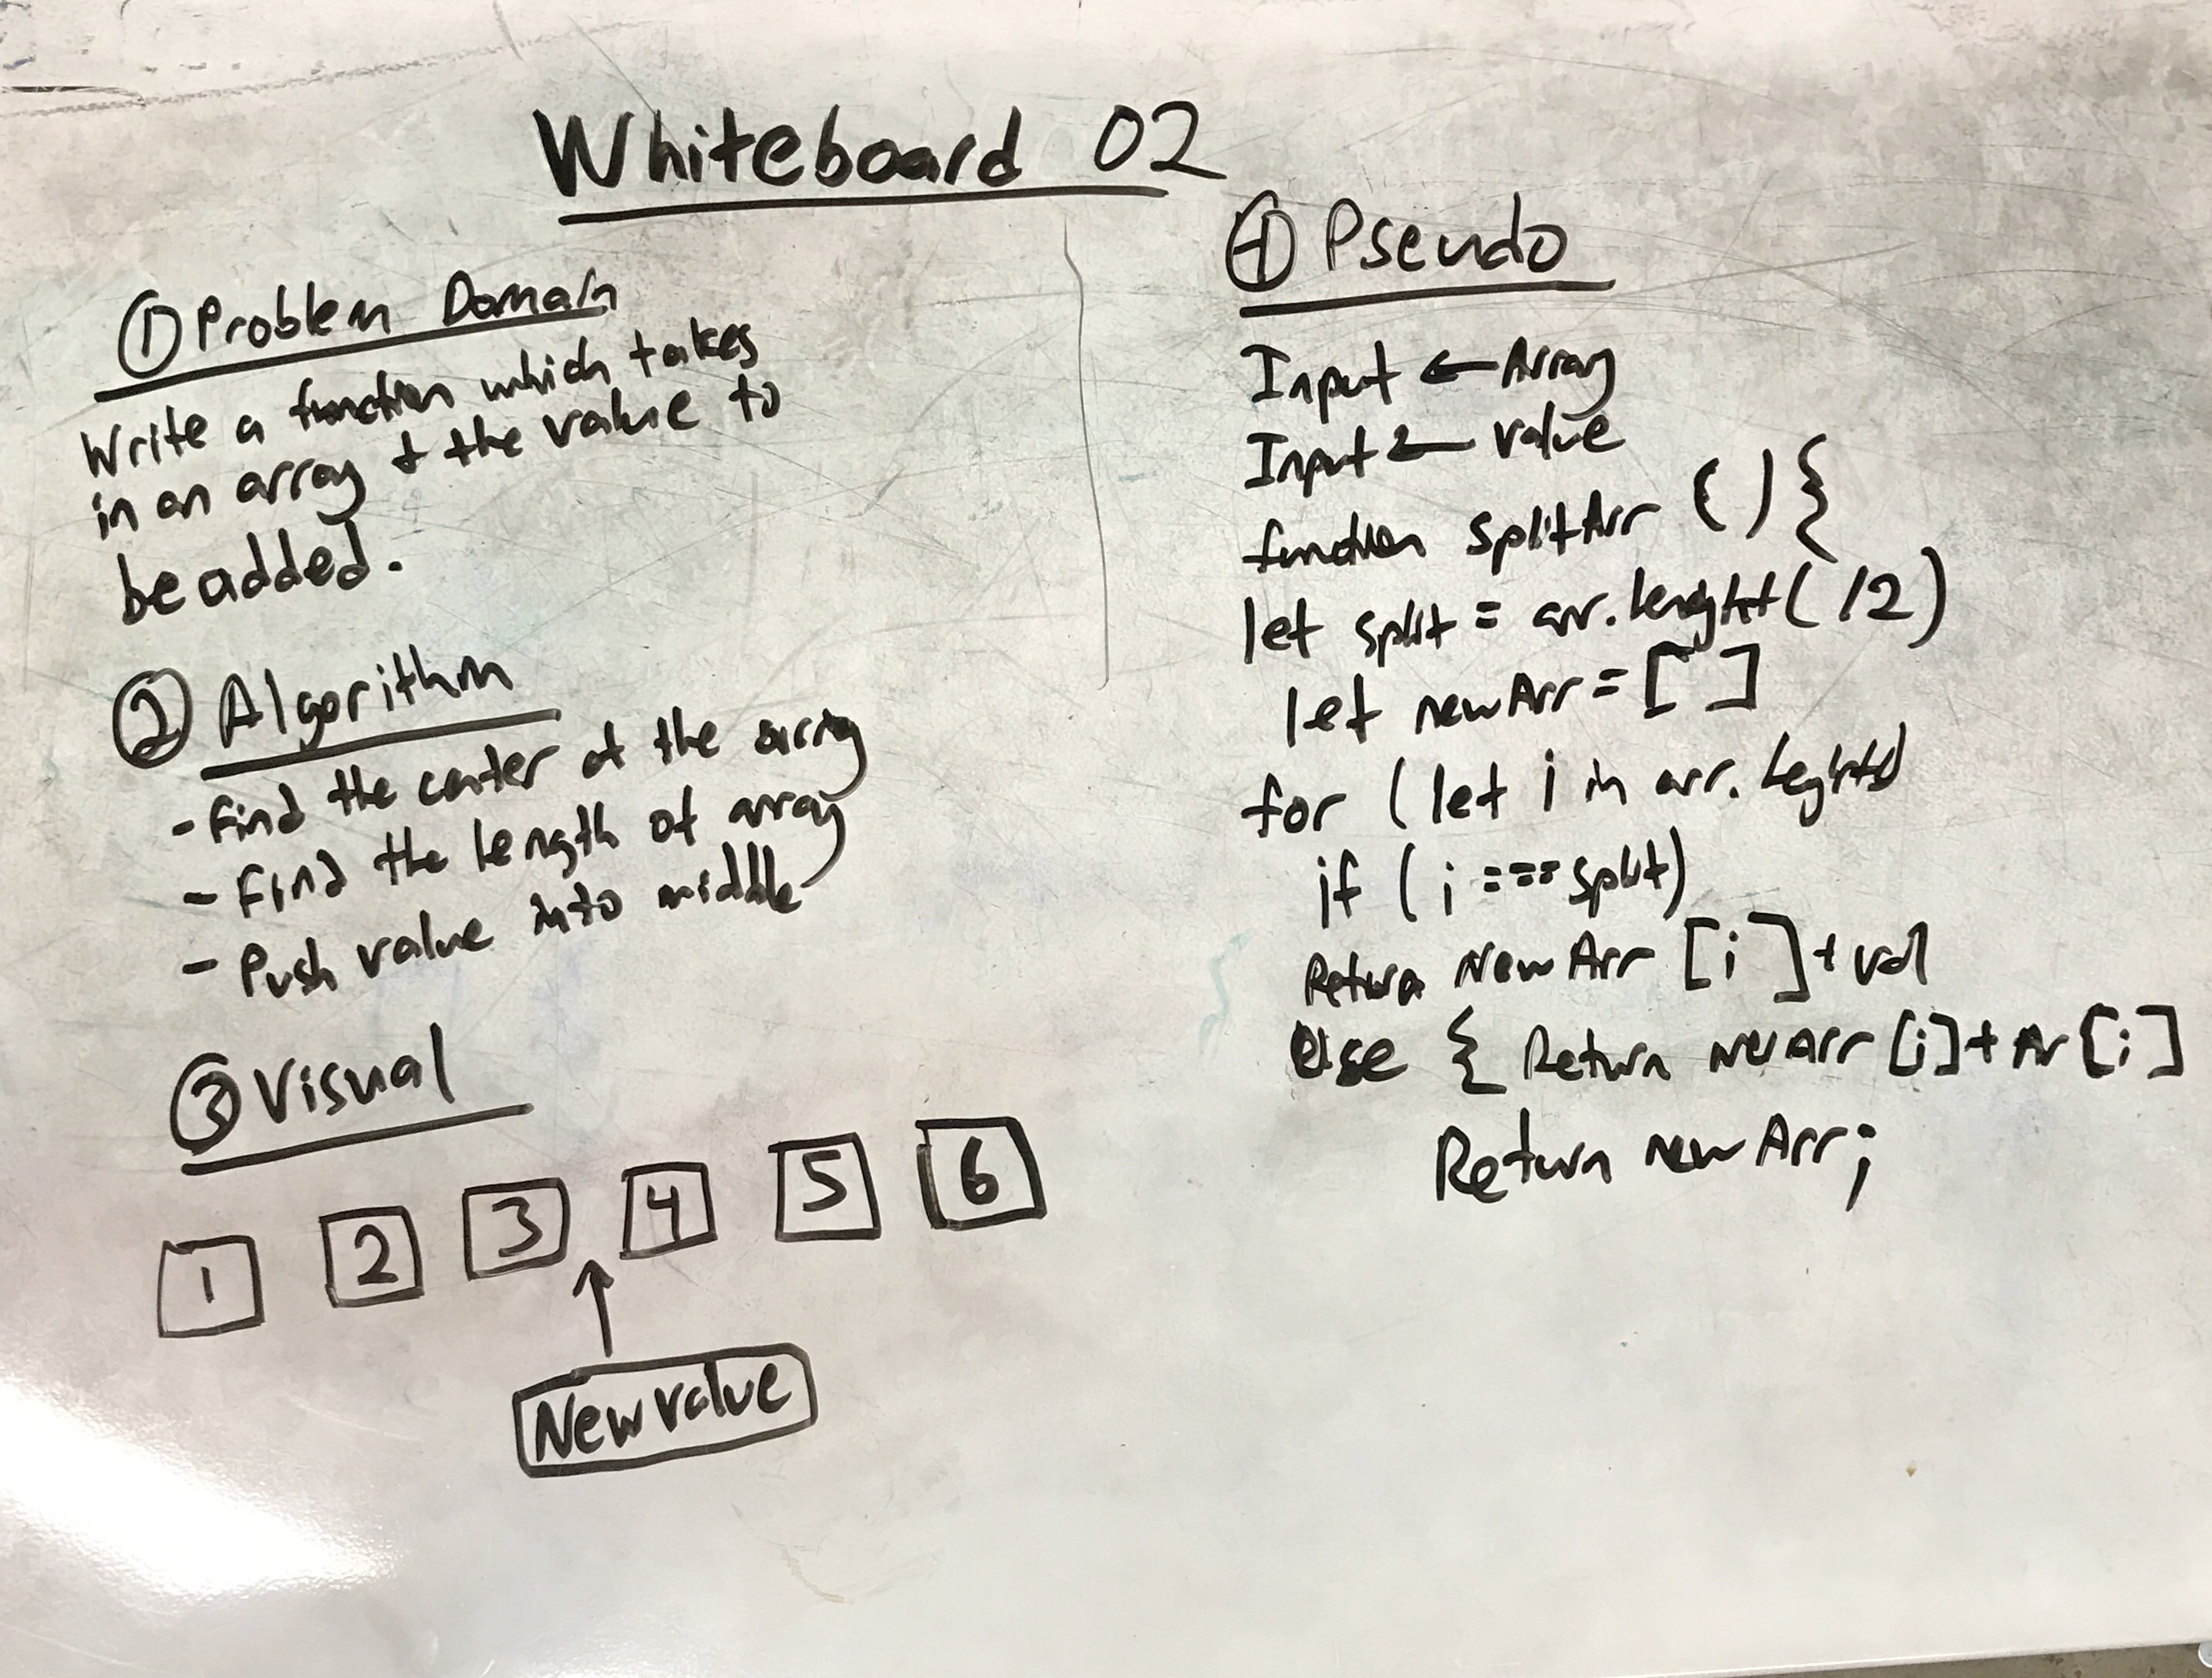 Whiteboard 02
① Problem Domain
Write a function which takes
in an array & the value to
be added.
② Algorithm
- Find the center of the array
- Find the length of array
- Push value into middle
③ Visual
1 2 3 4 5 6
New value
④ Pseudo
Input ← Array
Input ← value
function splitArr () {
let split = arr.lenght(/2)
let newArr = [ ]
for (let i in arr.leghth)
if (i === split)
Return NewArr [i] + val
else { Return newArr [i] + Ar [i]
Return newArr;